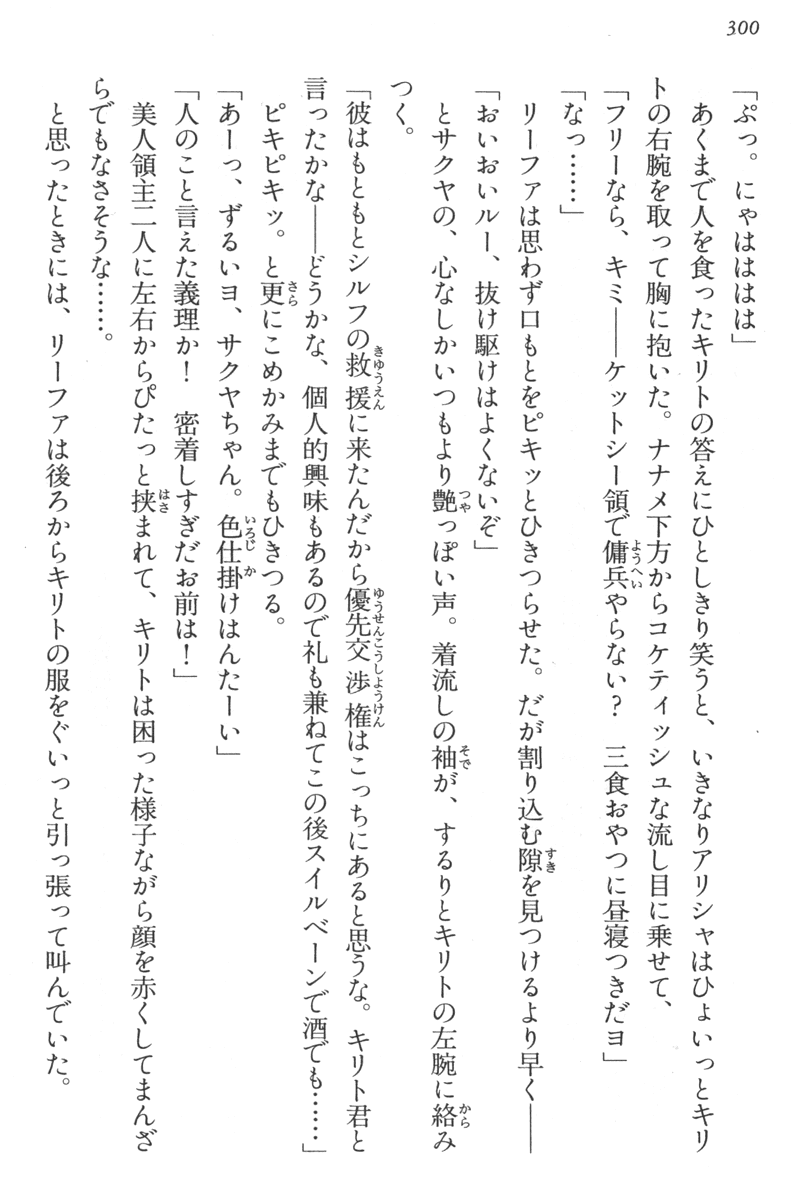 300
「ぷっ。にゃはははは」
　あくまで人を食ったキリトの答えにひとしきり笑うと、いきなりアリシャはひょいっとキリ
トの右腕を取って胸に抱いた。ナナメ下方からコケティッシュな流し目に乗せて、
「フリーなら、キミ――ケットシー領で傭兵やらない？　三食おやつに昼寝つきだヨ」
「なっ……」
　リーファは思わず口もとをピキッとひきつらせた。だが割り込む隙を見つけるより早く――
「おいおいルー、抜け駆けはよくないぞ」
　とサクヤの、心なしかいつもより艶っぽい声。着流しの袖が、するりとキリトの左腕に絡み
つく。
「彼はもともとシルフの救援に来たんだから優先交渉権はこっちにあると思うな。キリト君と
言ったかな――どうかな、個人的興味もあるので礼も兼ねてこの後スイルベーンで酒でも……」
　ピキピキッ。と更にこめかみまでもひきつる。
「あーっ、ずるいヨ、サクヤちゃん。色仕掛けはんたーい」
「人のこと言えた義理か！　密着しすぎだお前は！」
　美人領主二人に左右からぴたっと挟まれて、キリトは困った様子ながら顔を赤くしてまんざ
らでもなさそうな……。
　と思ったときには、リーファは後ろからキリトの服をぐいっと引っ張って叫んでいた。